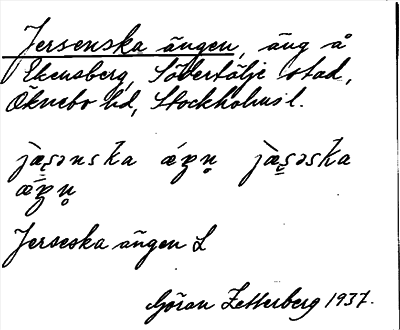 Jersenska ängen, äng å
Ekensberg, Södertälje stad,
Öknebo hd, Stockholms l.
Jerseska ängen L
Göran Zetterberg 1937.